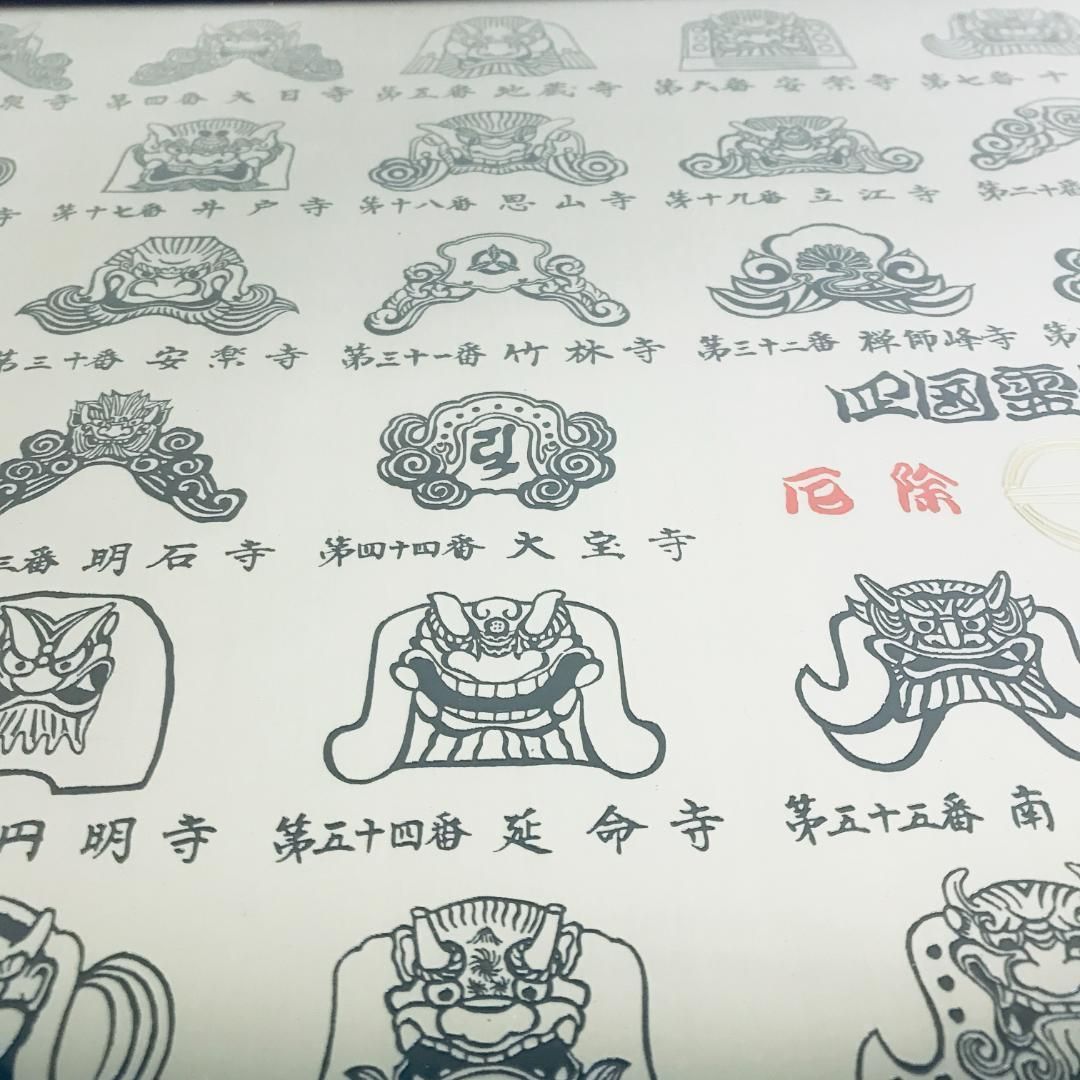 泉寺 第四番 大日寺 第五番 地蔵寺 第六番 安楽寺 第七番 十
寺 第十七番 井戸寺 第十八番 恩山寺 第十九番 立江寺 第二十番
第三十番 安楽寺 第三十一番 竹林寺 第三十二番 禅師峰寺 第
四國霊
厄除
三番 明石寺 第四十四番 大宝寺
円明寺 第五十四番 延命寺 第五十五番 南